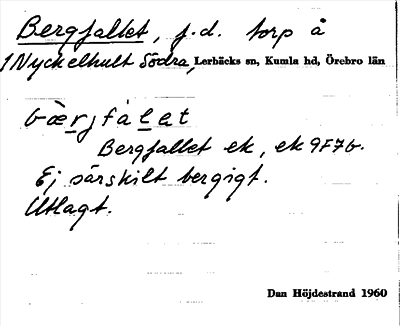 Bergfallet, f.d. torp å
1 Nyckelhult Södra, Lerbäcks sn, Kumla hd, Örebro län
bær̲jfal̲e̲t
Bergfallet ek, ek 9F7b.
Ej särskilt bergigt.
Utlagt.
Dan Höjdestrand 1960